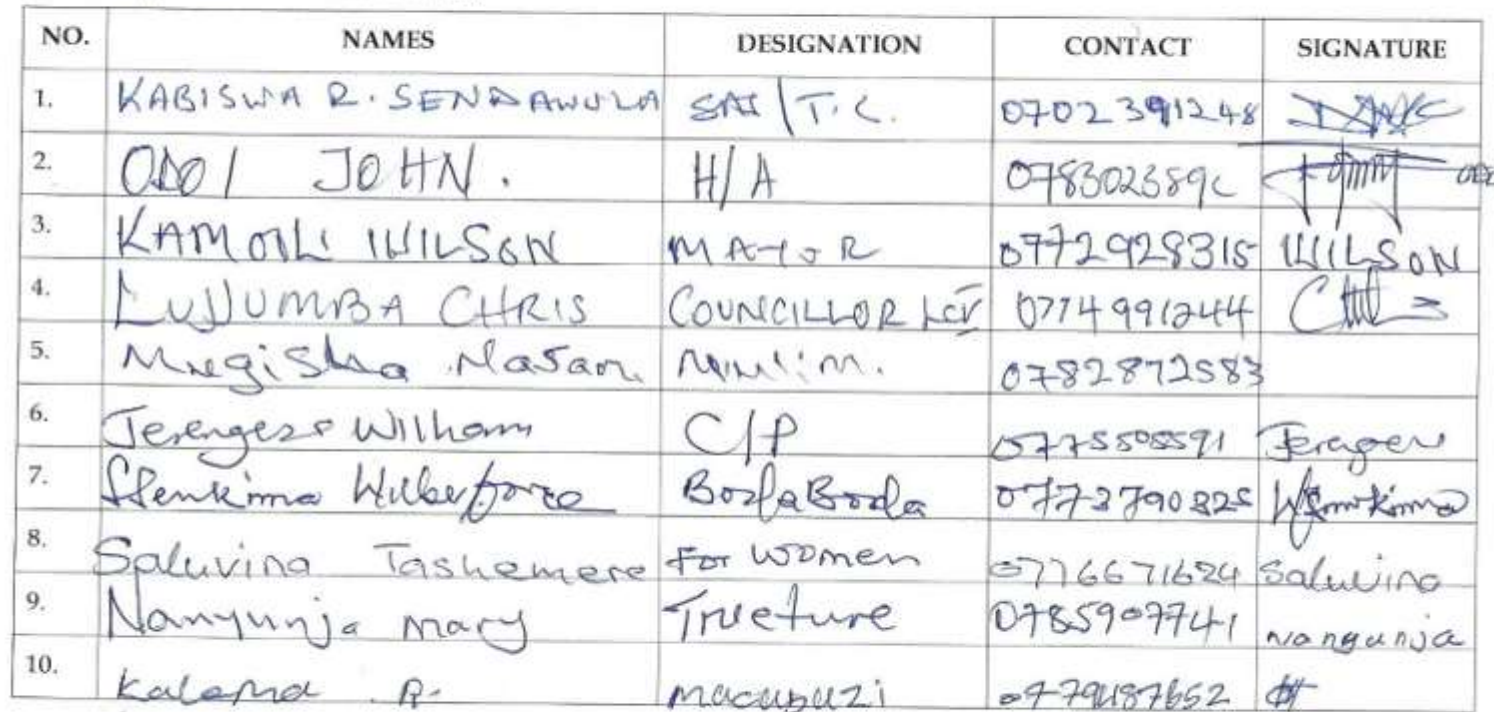 NO. NAMES DESIGNATION CONTACT SIGNATURE
1. KABISWA R. SENDAWULA SAS/T.C. 0702391248
2. ODOI JOHN. H/A 078302389
3. KAMOILI WILSON MAYOR 0772928315 WILSON
4. LUJJUMBA CHRIS COUNCILLOR LCV 0774991244
5. Mugisha Nasan 0782872583
6. William C/P 0775505591
7. Wilberforce BodaBoda 0773790825
8. Saluvina Tashemere For women 0776671624 Saluvina
9. Nanyunja Mary Trueture 0785907741 Nangunja
10. Kalema R. macubuzi 0779487652